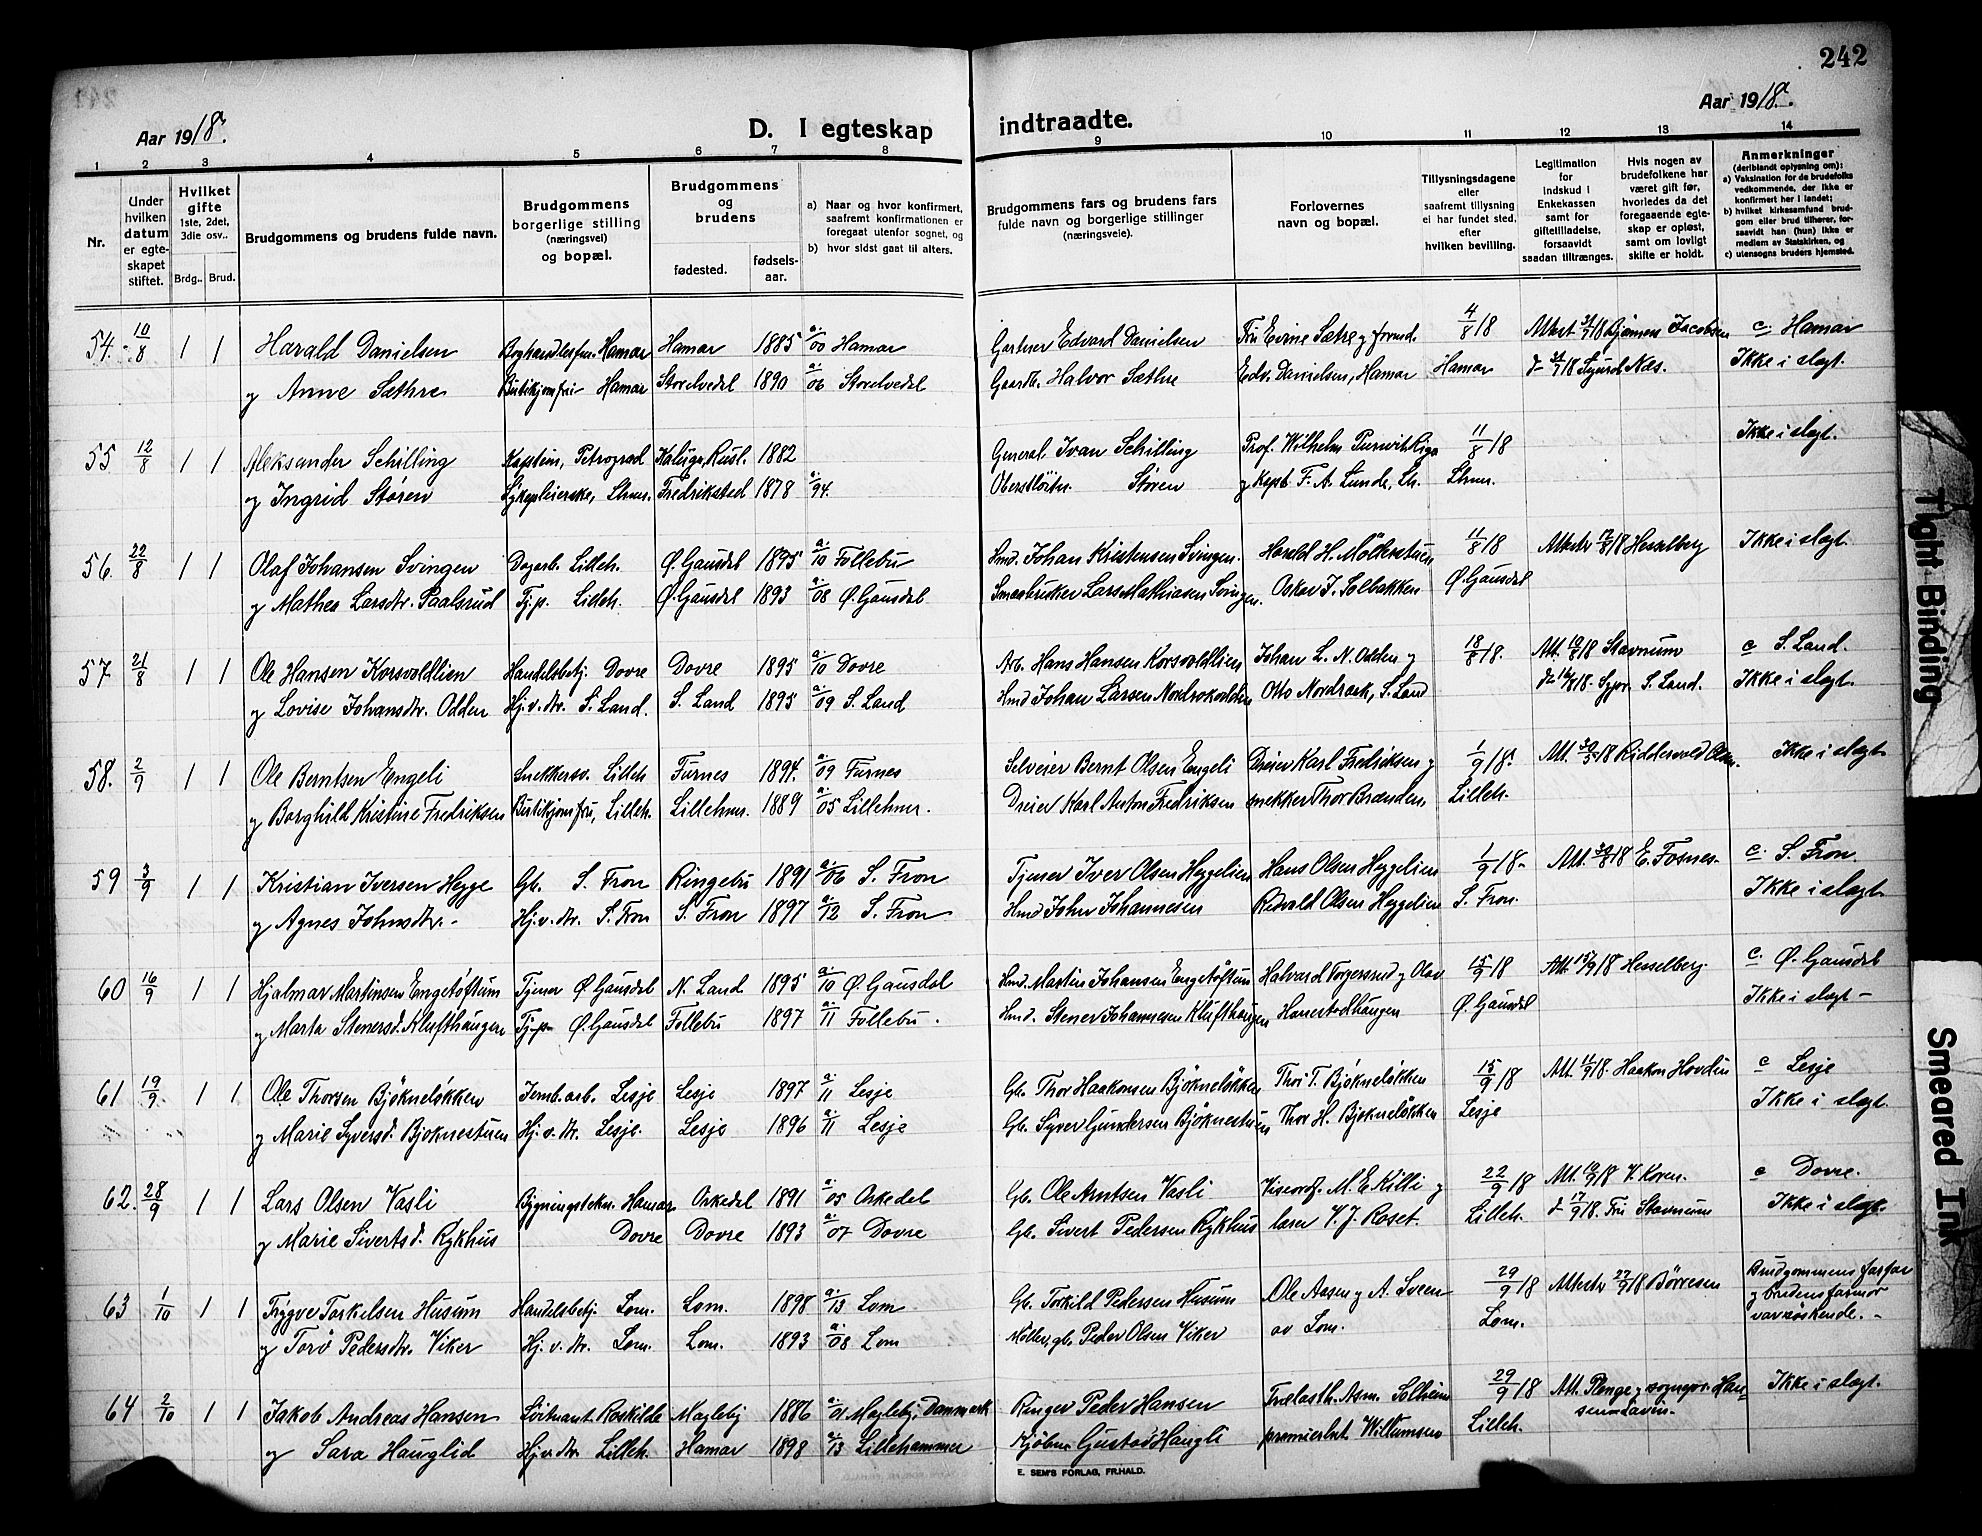 242
Aar 1918.
D. I egteskap indtraadte.
Aar 1918.
1 2 3 4 5 6 7 8 9 10 11 12 13 14
Nr.
Under hvilken datum er egteskapet stiftet.
Hvilket gifte 1ste, 2det, 3die osv..
Brdg.. Brud.
Brudgommens og brudens fulde navn.
Brudgommens borgerlige stilling (næringsvei) og bopæl.
Brudgommens og brudens
fødested. fødselsaar.
a) Naar og hvor konfirmert, saafremt konfirmationen er foregaat utenfor sognet, og
b) hvor sidst gaat til alters.
Brudgommens fars og brudens fars fulde navn og borgerlige stillinger (næringsveie).
Forlovernes navn og bopæl.
Tillysningsdagene eller saafremt tillysning ei har fundet sted, efter hvilken bevilling.
Legitimation for indskud i Enkekassen samt for giftetilladelse, forsaavidt saadan tiltrænges.
Hvis nogen av brudefolkene har været gift før, hvorledes da det foregaaende egteskap er opløst, samt om lovligt skifte er holdt.
Anmerkninger (deriblandt oplysning om):
a) Vaksination for de brudefolks vedkommende, der ikke er konfirmert her i landet;
b) hvilket kirkesamfund brudgom eller brud tilhører, forsaavidt han (hun) ikke er medlem av Statskirken, og
c) utensogns bruders hjemsted.
54. 10/8 1 1 Harald Danielsen Boghandlerfm. Hamar Hamar 1885 a. 00 Hamar Gartner Edvard Danielsen Fru Evine Sætre g formd. 4/8 18 Attest 31/7 18 Bjarne Jacobsen c. Hamar
og Anne Sæthre Butikjomfru Hamar Storelvedal 1890 a. 06 Storelvedal Gaardb. Halvor Sæthre Edv. Danielsen, Hamar Hamar d- 31/7 18 Sigurd Næs. Ikke i slegt.
55 12/8 1 1 Aleksander Schilling Kaptein, Petrograd Kaluga, Rusl. 1882 General Ivan Schilling Prof. Wilhelm Purwit Riga 11/8 18 Ikke i slegt.
og Ingrid Støren Sykepleierske, Lhmr. Fredrikstad 1878 a. 94. Oberstløitn. Støren g Kapt. F. A. Lunde, Lh. Lhmr.
56. 22/8 1 1 Olaf Johansen Svingen Dagarb. Lilleh. Ø. Gausdal 1895 a. 10 Follebu Hmd. Johan Kristensen Svingen. Harald H. Møllerstuen 11/8 18 Attestr 17/8 18 Hesselberg Ikke i slegt.
og Mathea Larsdtr. Paalsrud Tj.p. Lilleh. Ø. Gausdal 1893 a. 08 Ø. Gausdal Smaabruker Lars Mathiasen Svingen. Oskar J. Solbakken Ø. Gausdal
57. 21/8 1 1 Ole Hansen Korsvoldlien Handelsbetj. Dovre Dovre 1895 a. 10 Dovre Arb. Hans Hansen Korsvoldlien Johan L. N. Odden g 18/8 18. Att. 19/8 18 Stavnum c S. Land.
og Lovise Johansdtr. Odden Hj.v.dtr. S. Land. S. Land 1895 a. 09 S. Land Hmd Johan Larsen Nordraakodden Otto Nordraak, S. Land Spr. S. Land. Ikke i slegt.
58. 2/9 1 1 Ole Berntsen Engeli Snekkersv. Lilleh Furnes 1894. a. 09 Furnes Selveier Bernt Olsen Engeli Dreier Karl Fredriksen g 1/9 18. Att. 18 Riddervold Olsen. Ikke i slegt
og Borghild Kristine Fredriksen Butikjomfru, Lilleh. Lillehmr. 1889 a. 05 Lillehmr. Dreier Karl Anton Fredriksen snekker Thor Brænden Lilleh.
59 3/9 1 1 Kristian Iversen Hegge Gb. S. Fron Ringebu 1891 a. 06 S. Fron Tjener Iver Olsen Heggelien Hans Olsen Heggelien 1/9 18. Att. 30/8 18 E. Fosnes. c. S. Fron.
og Agnes Johnsdtr.- Hj.v.dtr. S. Fron S. Fron 1897 a. 12 S. Fron Hmd John Johannesen Redvald Olsen Heggelien S. Fron. Ikke i slegt.
60 16/9 1 1 Hjalmar Martinsen Engetøftum Tjener Ø. Gausdal N. Land 1895 a. 10 Ø. Gausdal Hmd. Martin Johansen Engetøftum Halvard Torgersrud g Olav 15/9 18 Att. 15/9 18 Hesselberg c. Ø. Gausdal
og Marta Stenersd. Klufthaugen Tj.p. Ø. Gausdal Follebu 1897 a. 11 Follebu. Hmd. Stener Johannesen Klufthaugen Hanestadhaugen Ø. Gausdal Ikke i slegt -
61 19/9 1 1 Ole Thorsen Bjøkneløkken Jernb.arb. Lesje Lesje 1897 a. 11 Lesje Gb. Thor Haakonsen Bjøkneløkken Thor T. Bjøkneløkken 15/9 18 Att. 11/9 18. Haakon Hovden c Lesje
og Marie Syversd. Bjøknestuen Hj.v.dt. Lesje. Lesje 1896 a. 11 Lesje Gb. Syver Gundersen Bjøknestuen Thor H. Bjøkneløkken Lesje Ikke i slegt.
62. 28/9 1 1 Lars Olsen Vasli Bygningstekn. Hamar Orkedal 1891 a. 05 Orkedal Gb. Ole Arntsen Vasli Viseordf. M. E. Killi g 22/9 18 Att. 19/9 18 V. Koren. c Dovre.
og Marie Sivertsd. Rykhus Dovre Dovre 1893 a. 07 Dovre Gb. Sivert Pedersen Rykhus lærer V. J. Roset. Lilleh. d- 17/9 18. Fru Stavnum Ikke i slegt.
63 1/10 1 1 Trygve Torkelsen Husum Handelsbetj. Lom. Lom. 1898 a. 13 Lom Gb. Torkild Pedersen Husum Ole Aasen g A. Sveen 29/9 18 Attestr 22/9 18 Børresen Brudgommens farfar
og Torø Pedersdtr. Viker Hj.v.dtr. Lom. Lom. 1893 a. 08 Lom Møller, gb. Peder Olsen Viker av Lom. Lom. g brudens farmor
var søskende.-
64 2/10 1 1 Jakob Andreas Hansen Løitnant Roskilde Magleby 1886 a. 01 Magleby, Danmark Ringer Peder Hansen Frelsesth. Asm. Solheim 29/9 18 Att. Plenge g sognepr. Han- Ikke i slegt.
og Sara Hauglid Hj.v.dtr. Lilleh. Hamar 1898 a. 13 Lillehammer Kjøbm. Gustav Haugli premierlnt. Willumsen Lilleh. sen
E. SEM'S FORLAG, FR.HALD.
Tight Binding
Smeared Ink